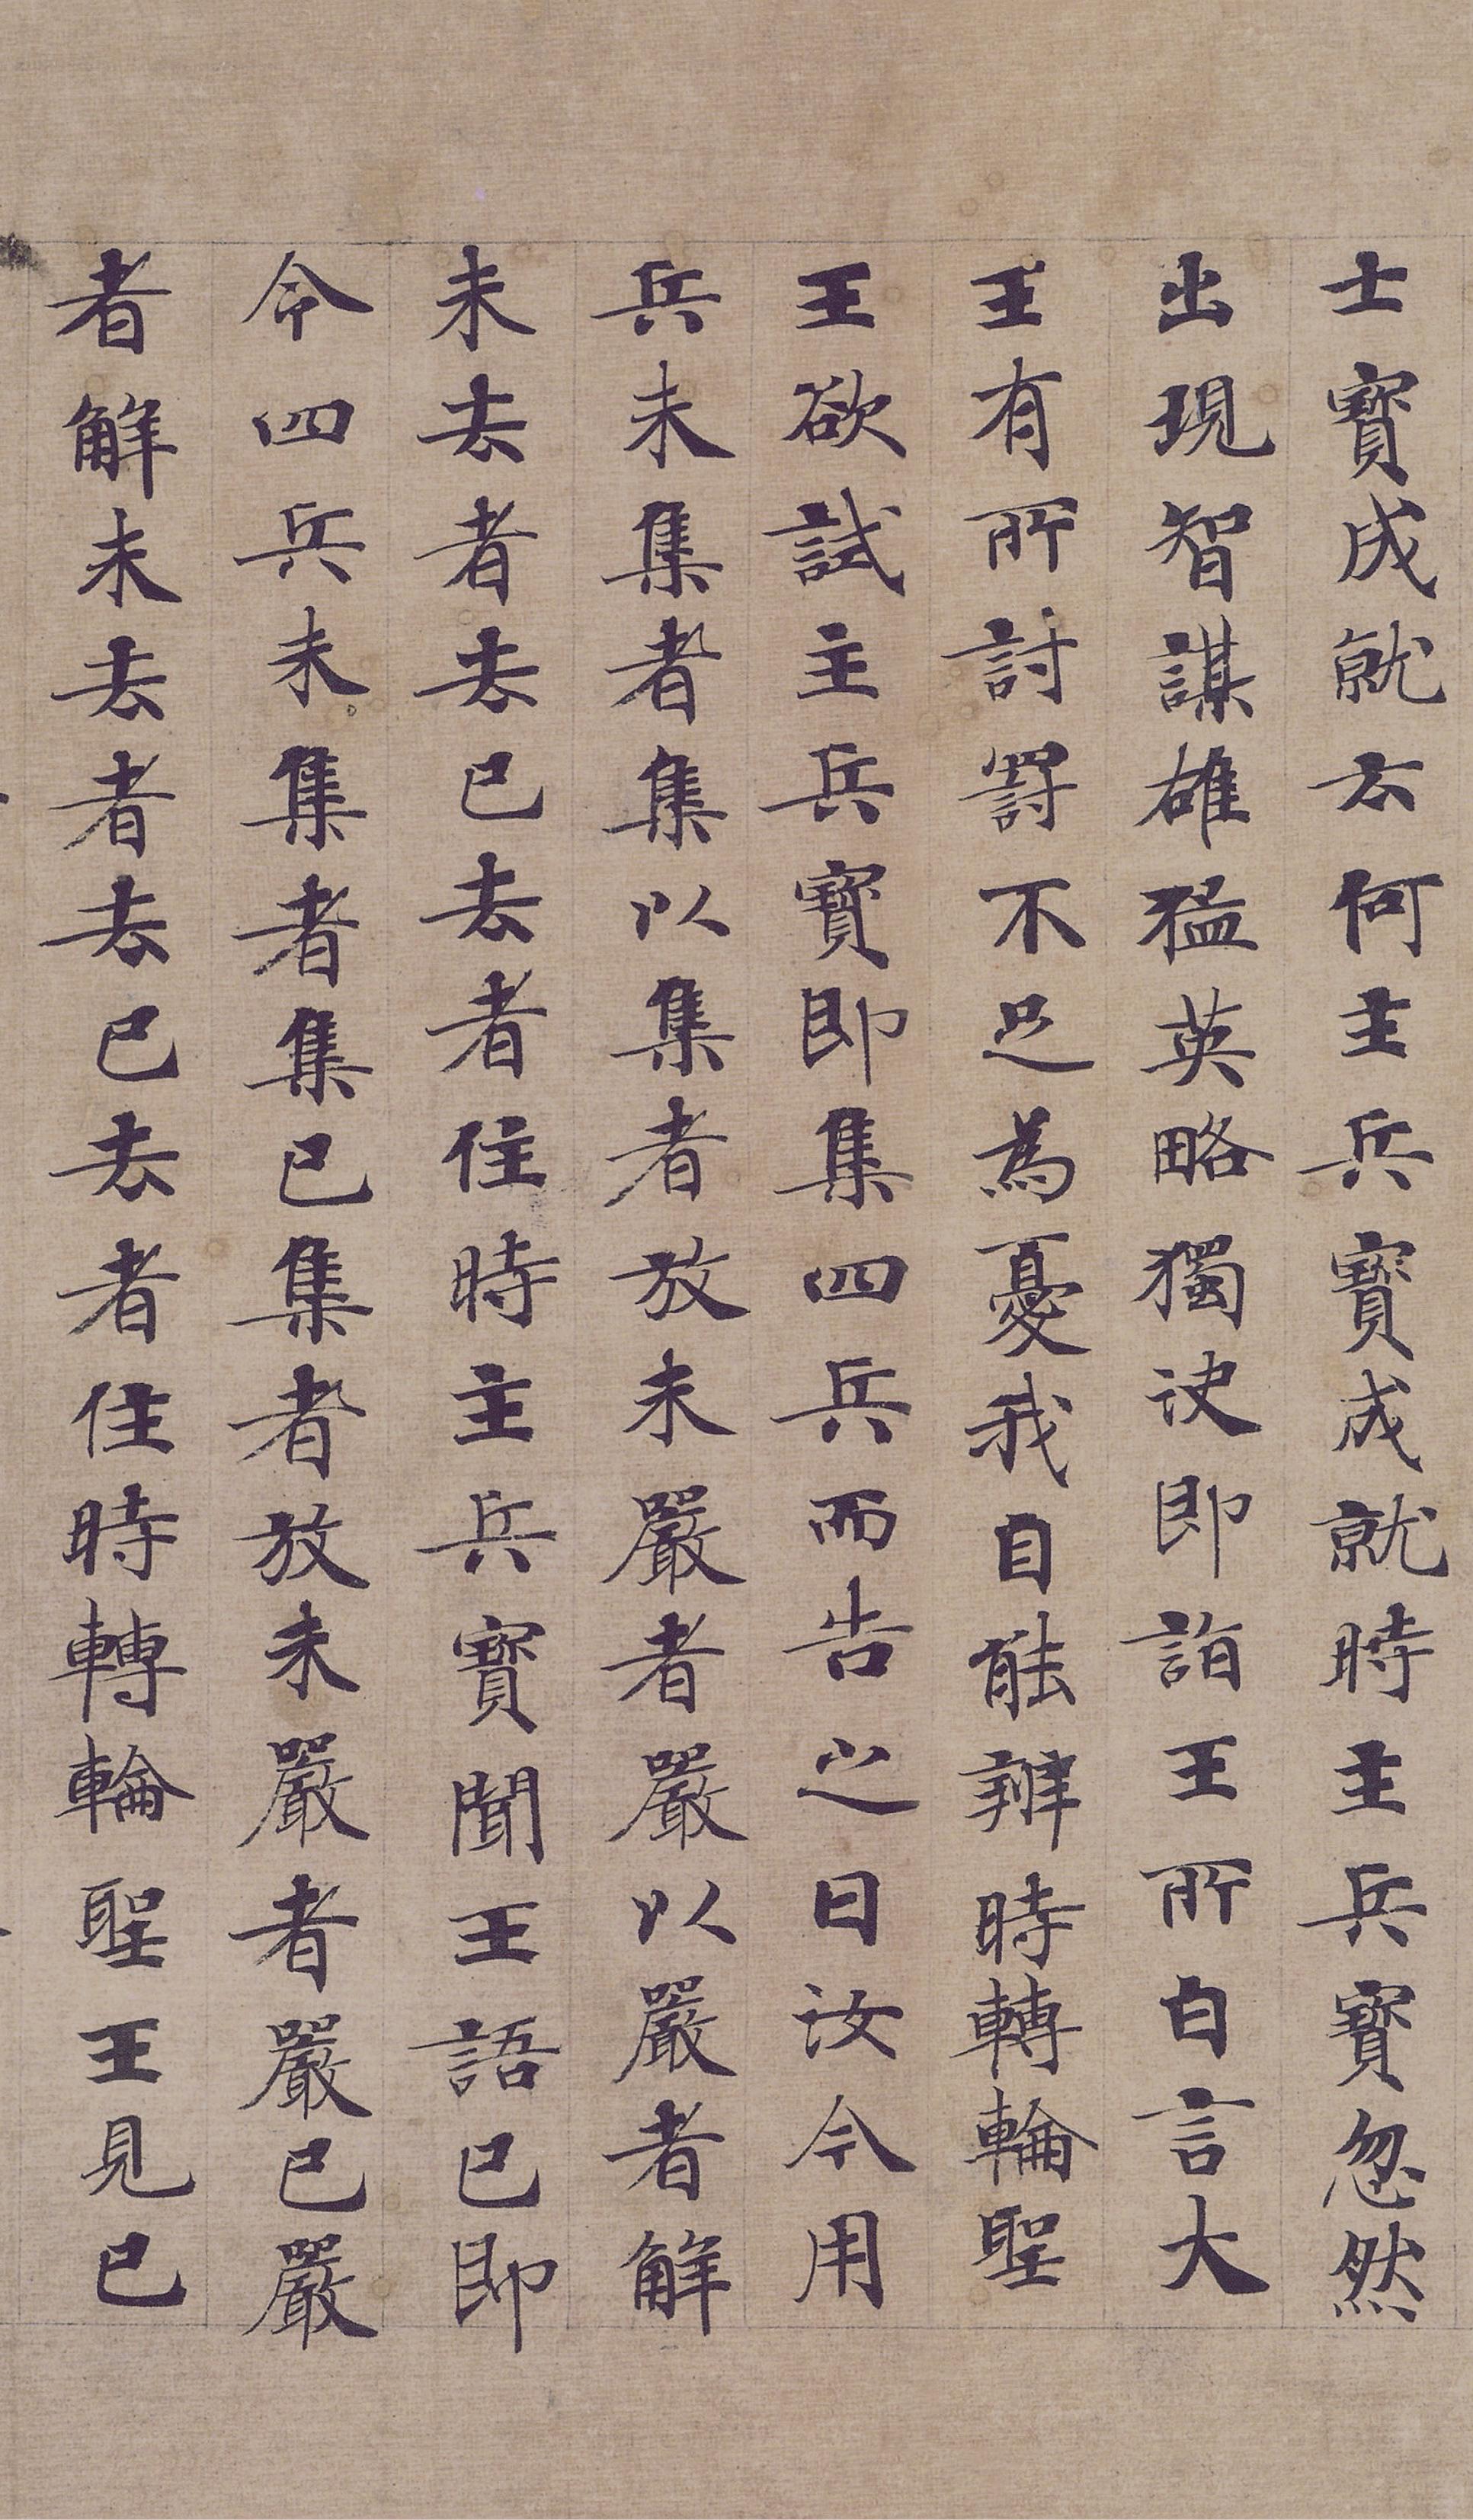 士寶成就云何主兵寶成就時主兵寶忽然
出現智謀雄猛英略獨决即詣王所白言大
王有所討罸不足為憂我自能辦時轉輪聖
王欲試主兵寶即集四兵而告之曰汝今用
兵未集者集以集者放未嚴者嚴以嚴者解
未去者去已去者住時主兵寶聞王語已即
令四兵未集者集已集者放未嚴者嚴已嚴
者解未去者去已去者住時轉輪聖王見已